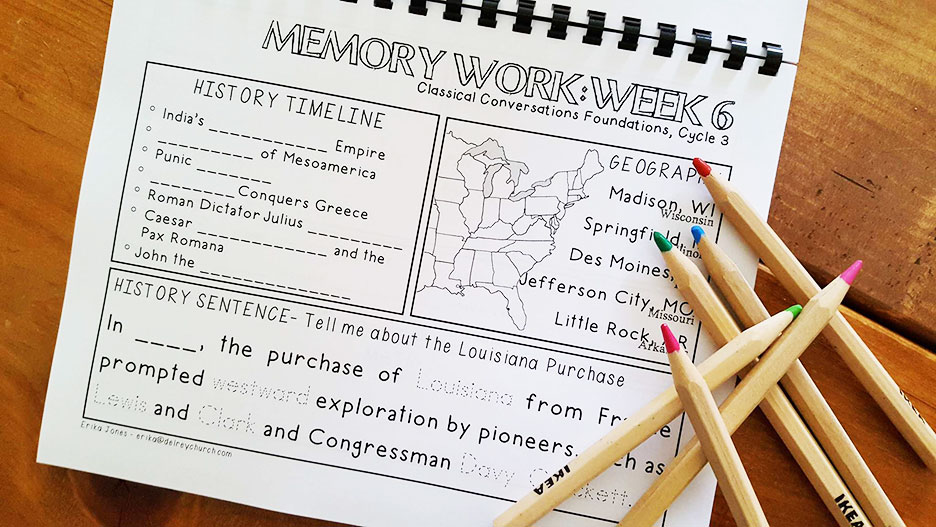 MEMORY WORK: WEEK 6
Classical Conversations Foundations, Cycle 3
HISTORY TIMELINE
India's ____________ Empire
__________ of Mesoamerica
Punic ________
________ Conquers Greece
Roman Dictator Julius __________
Caesar ______________ and the
Pax Romana
John the ________________
GEOGRAPH
Madison, WI
Wisconsin
Springfield
Des Moines,
Jefferson City, MO
Missouri
Little Rock, R
HISTORY SENTENCE- Tell me about the Louisiana Purchase
In ____, the purchase of Louisiana from
prompted westward exploration by pioneers, as
Lewis and Clark and Congressman Davy
Erika Jones - erika@delreychurch.com
IKEA
IKEA